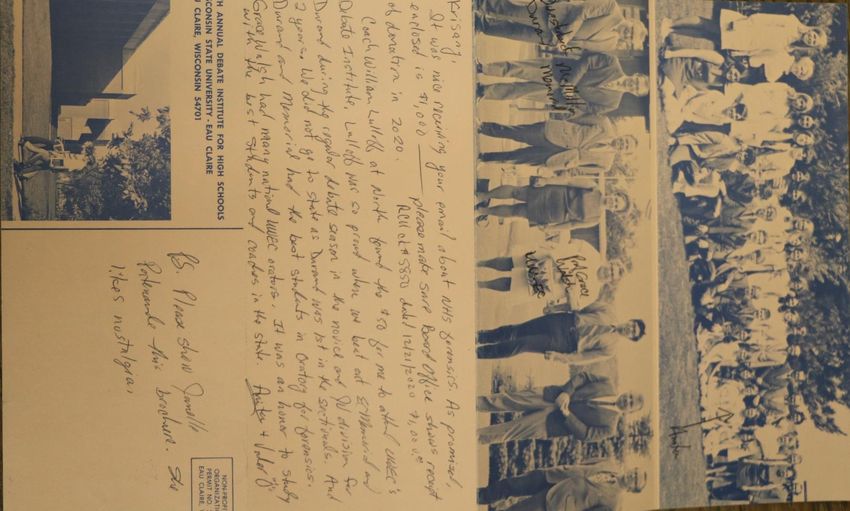 Krisany,
It was nice receiving your email about NHS forensics. As promised,
enclosed is $1,000 please make sure Board Office shows receipt
of donation in 2020. REU ck #5850 date/12/21/2020 $1,000.00
Coach William Lulloff at North found the $50 for me to attend UWEC's
Debate Institute. Lulloff was so proud when we beat out EMemorial and
Durand during the regular debate season in the novice and JV division for
2 years. We did not go to state as Durand was 1st in the sectionals. And
Durand and Memorial had the best students in Oratory for forensics.
Grace Walsh had many national UWEC orators. It was an honor to study
with the best students and coaches in the state.
TH ANNUAL DEBATE INSTITUTE FOR HIGH SCHOOLS
WISCONSIN STATE UNIVERSITY - EAU CLAIRE
U CLAIRE, WISCONSIN 54701
PS. Please show Janelle
this brochure. She
likes nostalgia.
NON-PROFI
ORGANIZATI
PERMIT NO.
EAU CLAIRE,
Grace
Walsh